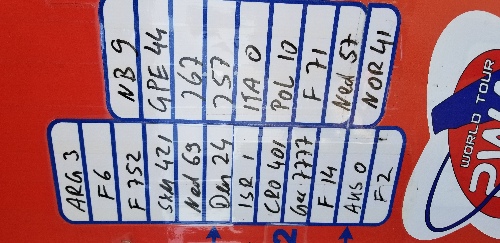 ARG 3
F 6
F 752
421
Ned 69
Den 24
ISR 1
CRO 401
Gre 7777
F 14
AUS 0
F 2
NB 9
GPE 44
767
757
ITA 0
POL 10
F 71
Ned 57
NOR 41
2
WORLD TOUR
PWA